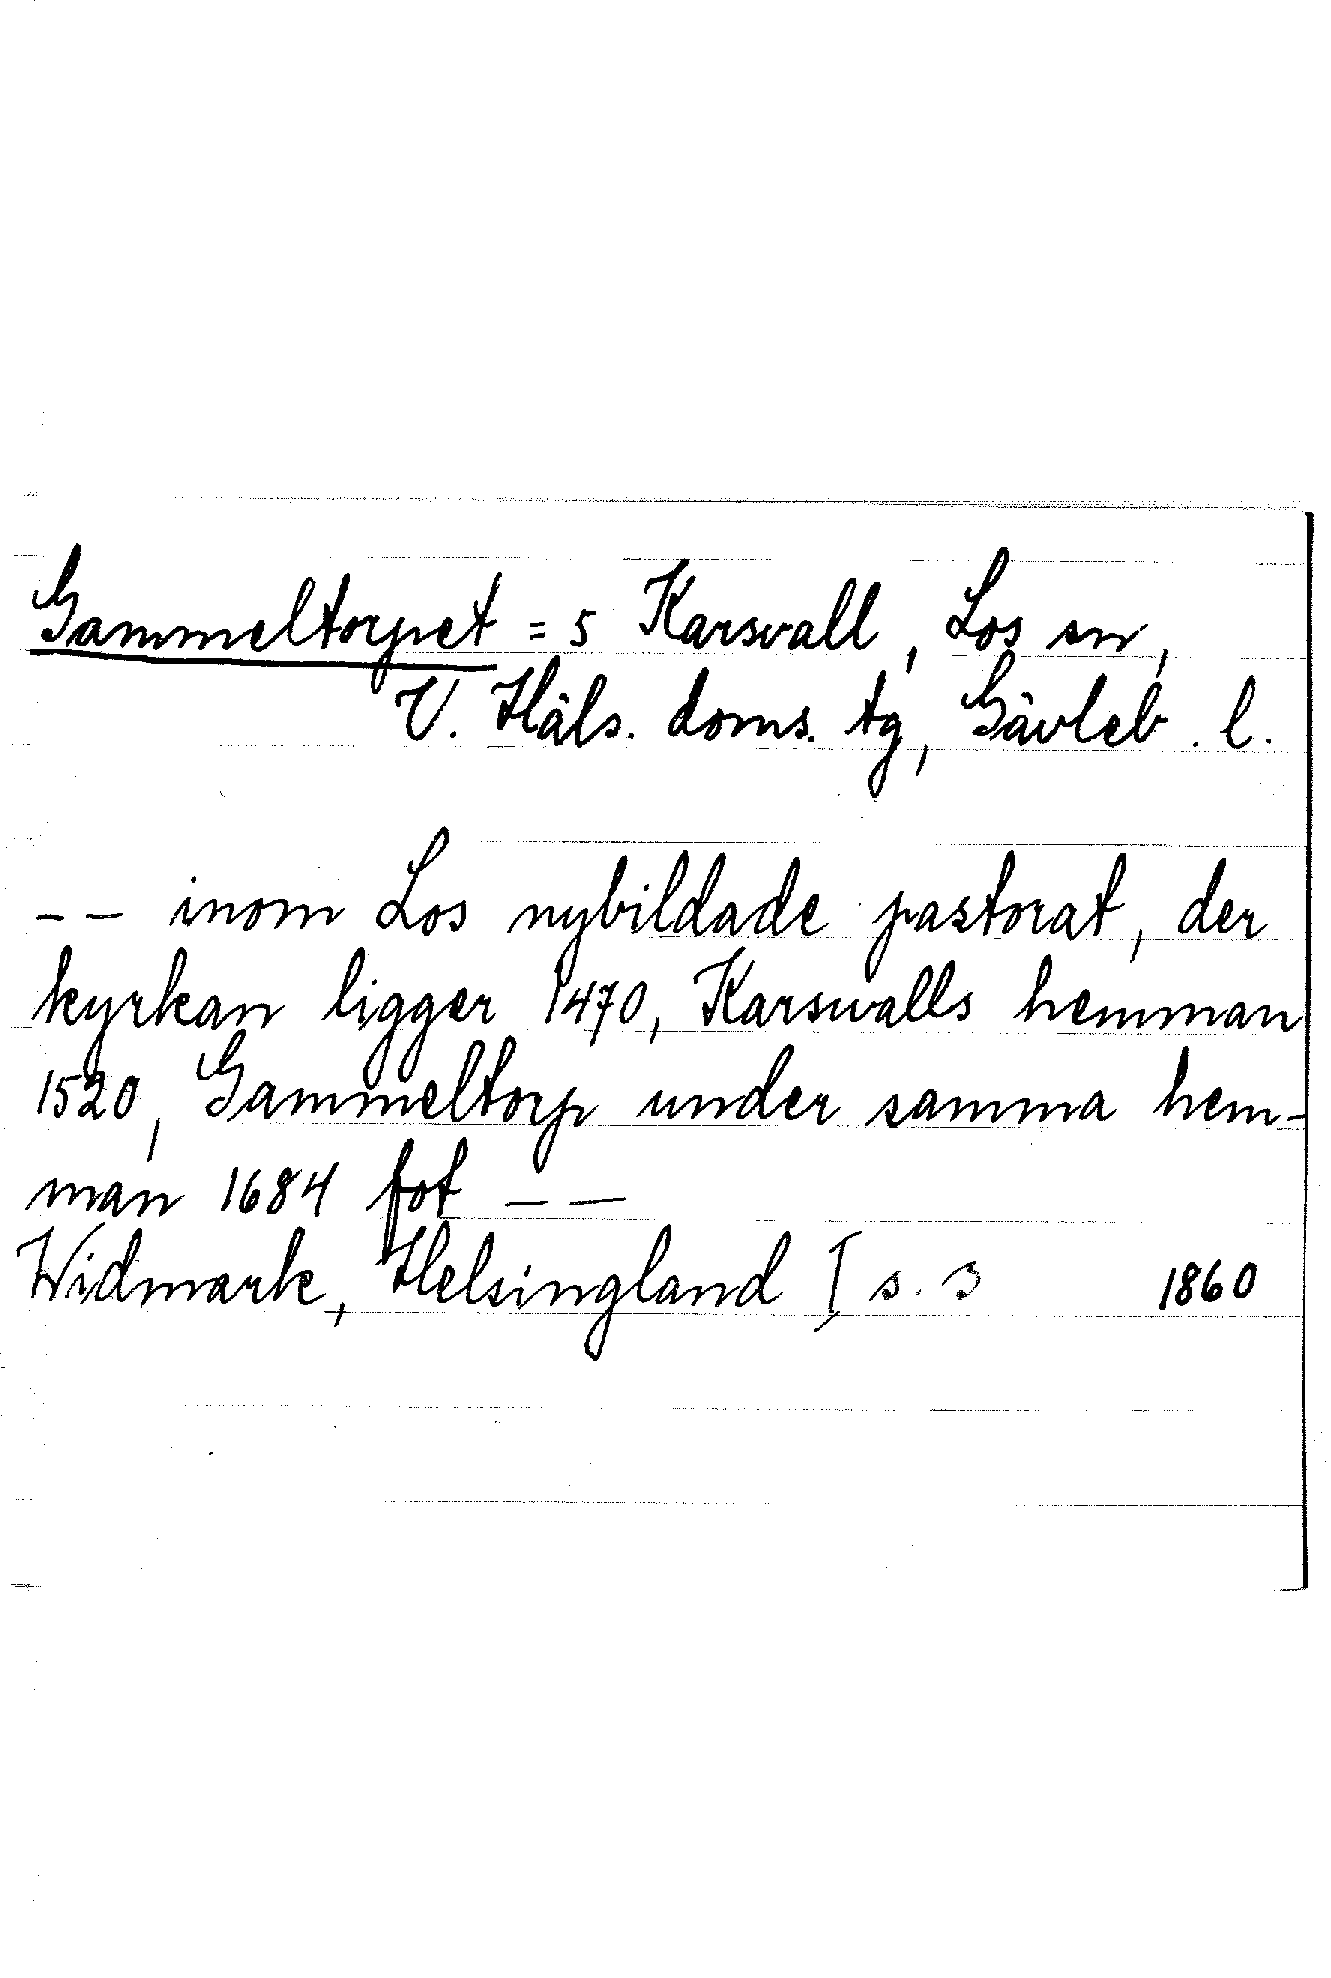 Gammeltorpet = 5 Karsvall, Los sn,
V. Häls. doms. tg, Gävleb. l.
-- inom Los nybildade pastorat, der
kyrkan ligger 1470, Karsvalls hemman
1520, Gammeltorp under samma hem-
man 1684 fot --
Widmark, Helsingland I s. 3 1860